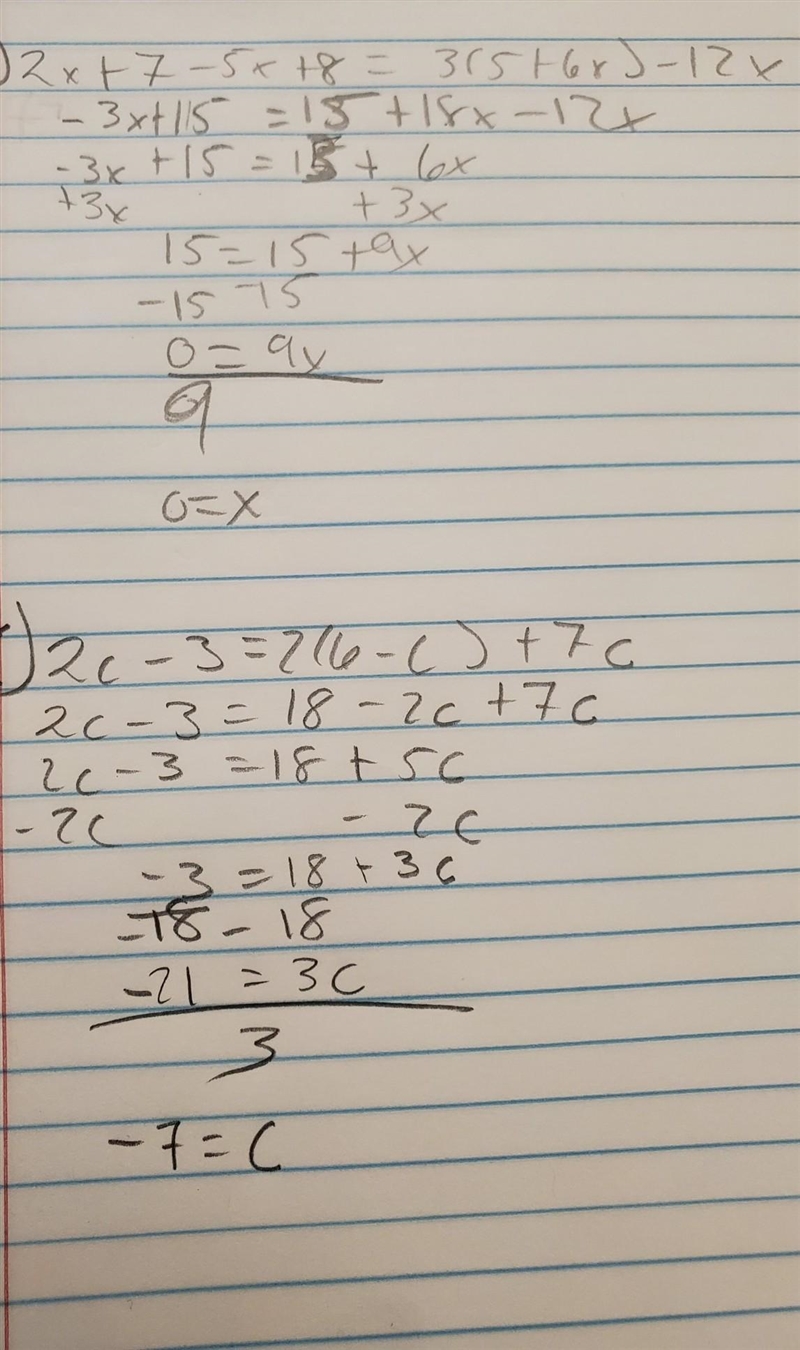 )2x+7-5x+8 = 3(5+6x)-12x
-3x+15 =15+18x-12x
-3x+15=15+ 6x
+3x +3x
15=15+9x
-15 -15
0=9x
9
0=x
)2c-3=2(6-c)+7c
2c-3=18-2c+7c
2c-3=18+5c
-2c -2c
-3=18+3c
-18-18
-21=3c
3
-7=c